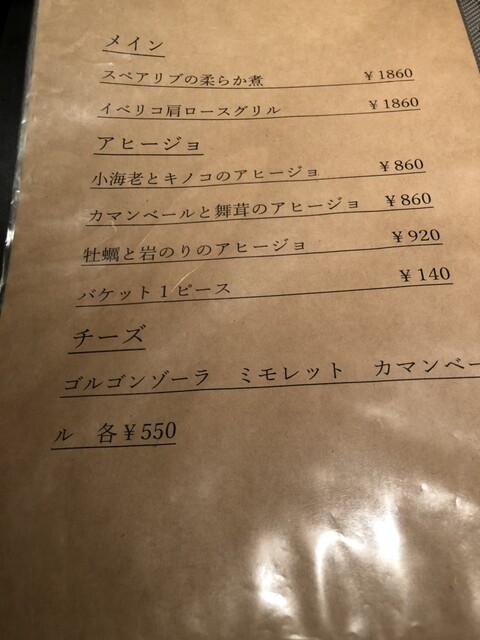 メイン
スペアリブの柔らか煮 ￥1860
イベリコ肩ロースグリル ￥1860
アヒージョ
小海老とキノコのアヒージョ ￥860
カマンベールと舞茸のアヒージョ ￥860
牡蠣と岩のりのアヒージョ ￥920
バケット１ピース ￥140
チーズ
ゴルゴンゾーラ　ミモレット　カマンベー
ル　各￥550